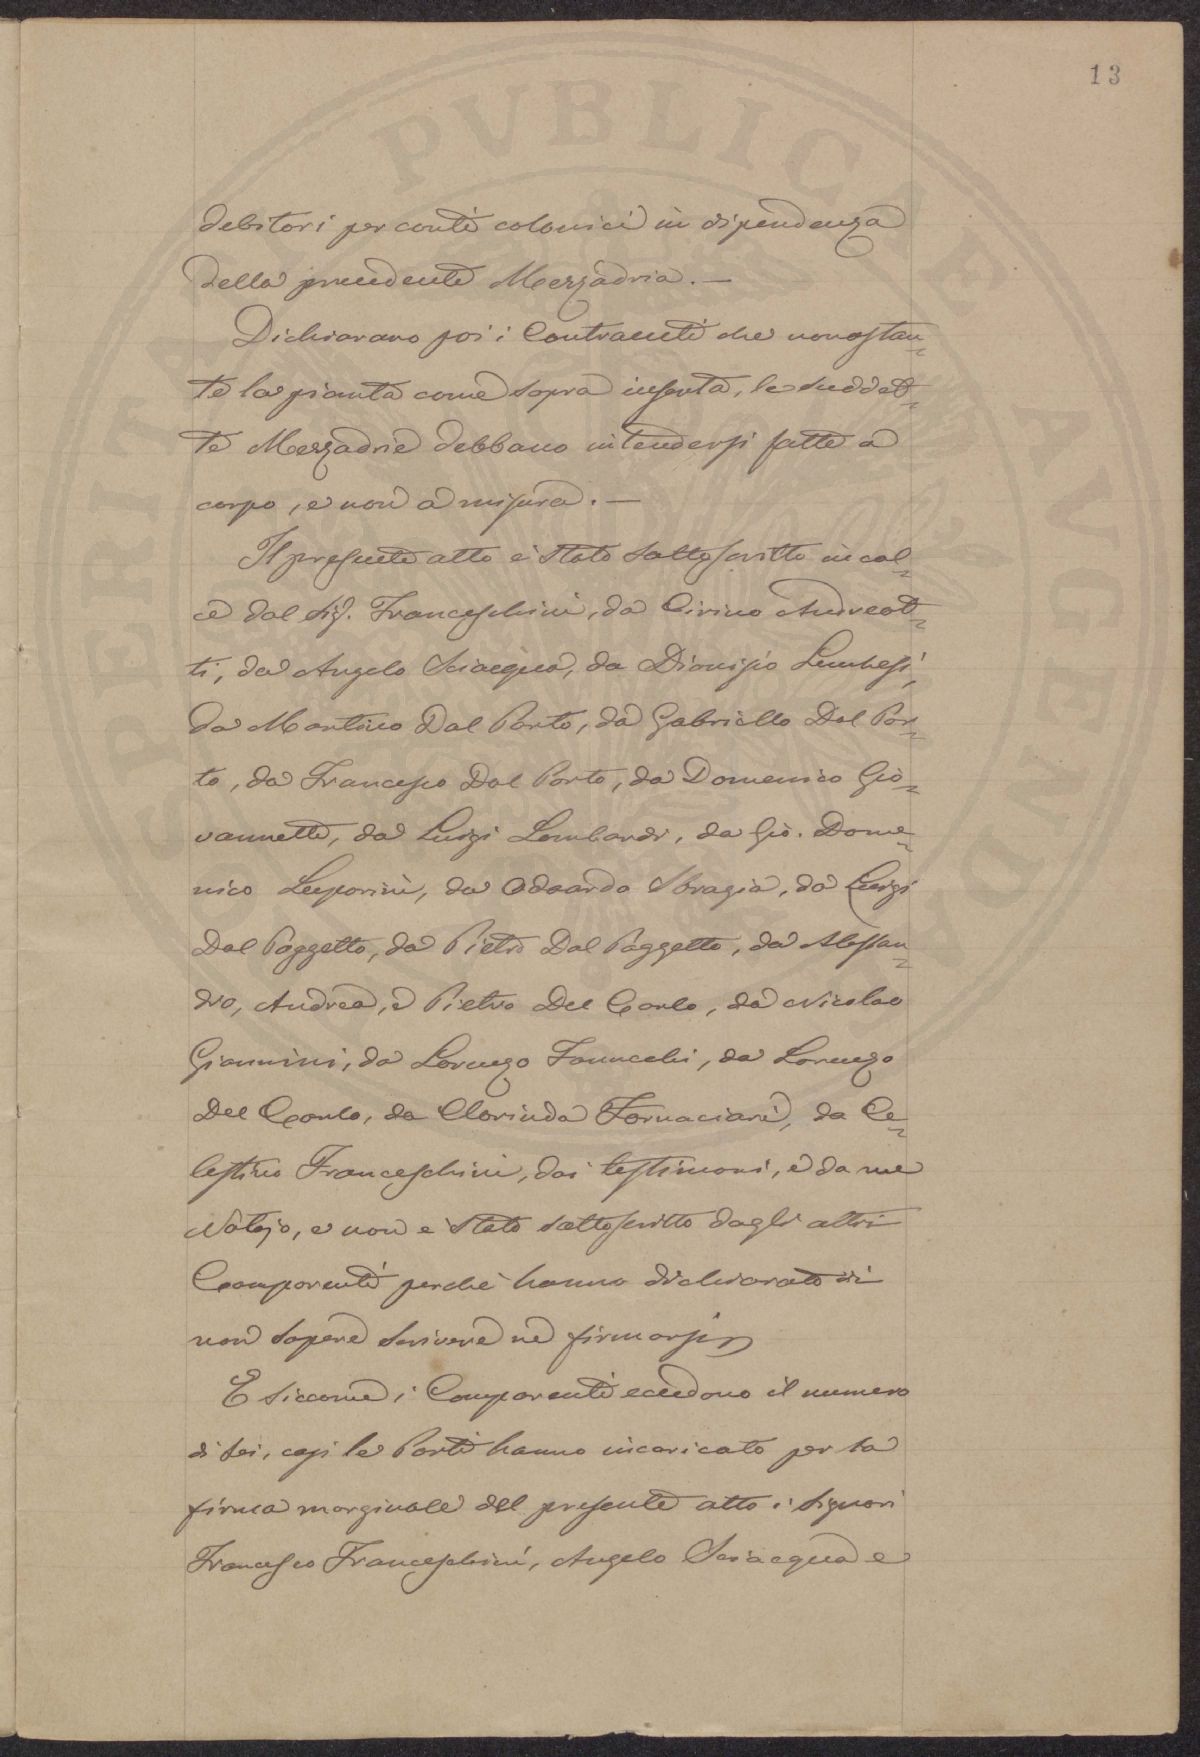 13
debitori per conti colonici in dipendenza
della precedente Mezzadria. —
Dichiarano poi i Contraenti che nonostan=
te la pianta come sopra inserta, le suddet=
te Mezzadrie debbano intendersi fatte a
corpo, e non a misura. —
Il presente atto è stato sottoscritto in cal=
ce dal Sig. Franceschini, da Cirino Andreot=
ti, da Angelo Sciacqua, da Dionisio
da Martino Dal Porto, da Gabriello Dal Por=
to, da Francesco Dal Porto, da Domenico Gio=
vannetti, da Luigi Lombardi, da Gio. Dome=
nico Luporini, da Odoardo Sbragia, da Luigi
Dal Poggetto, da Pietro Dal Poggetto, da Alessan=
dro, Andrea, e Pietro Del Carlo, da Nicolao
Giannini, da Lorenzo Fannucchi, da Lorenzo
Del Carlo, da Clorinda Fornaciari, da Ce=
lestino Franceschini, dai testimoni, e da me
Notajo, e non è stato sottoscritto dagli altri
Comparenti perchè hanno dichiarato di
non sapere scrivere nè firmarsi
E siccome i Comparenti eccedono il numero
di sei, così le Parti hanno incaricato per la
firma marginale del presente atto i Signori
Francesco Franceschini, Angelo Sciacqua e
PVBLICAE
AVGENDA